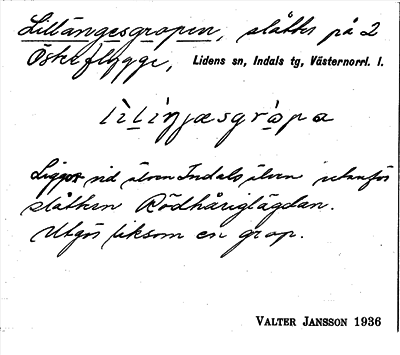 Lillängesgropen, slåtter på 2
Österflygge, Lidens sn, Indals tg, Västernorrl. l.
Ligger vid älven Indalsälven utanför
slåtten Rödhåriglägdan.
Utgör liksom en grop.
VALTER JANSSON 1936